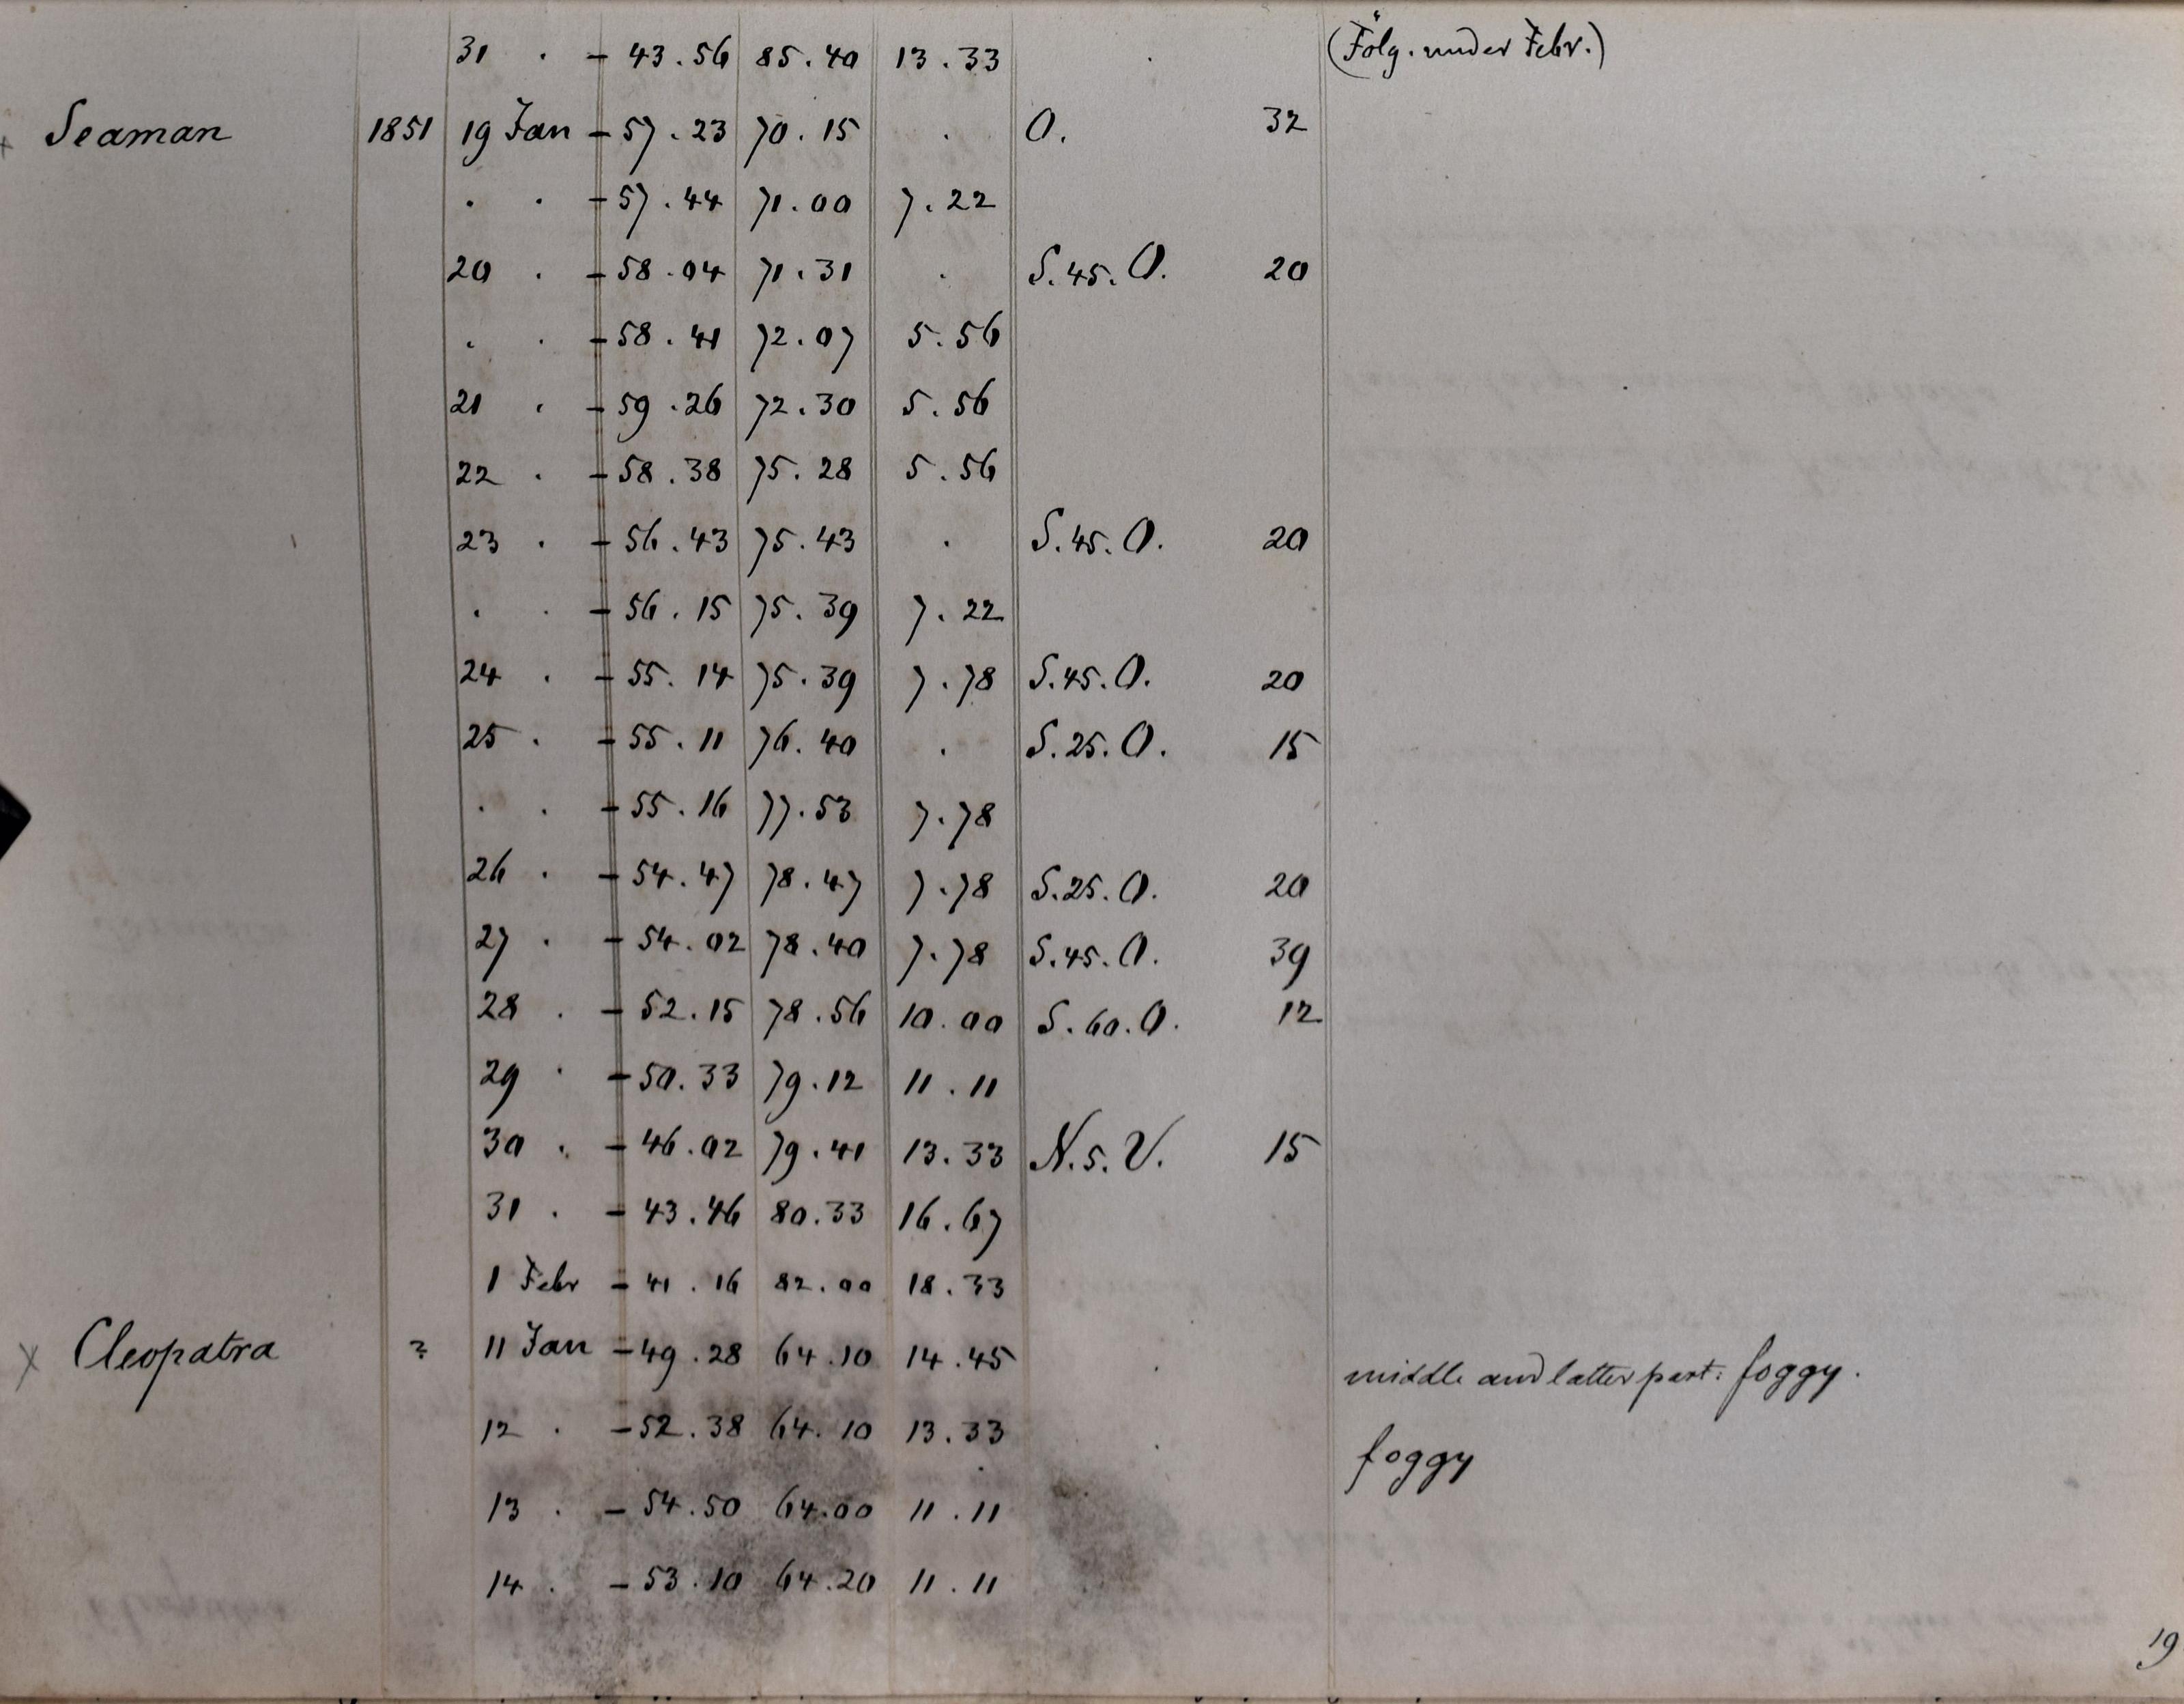 31 . - 43.56 85.40 13.33 . (Fölg. under Febr.)
Seaman 1851 19 Jan - 57.23 70.15 . O. 32
. . - 57.44 71.00 7.22
20 . - 58.04 71.31 . S.45.O. 20
. . - 58.41 72.07 5.56
21 . - 59.26 72.30 5.56
22 . - 58.38 75.28 5.56
23 . - 56.43 75.43 . S.45.O. 20
. . - 56.15 75.39 7.22
24 . - 55.14 75.39 7.78 S.45.O. 20
25 . - 55.11 76.40 . S.25.O. 15
. . - 55.16 77.53 7.78
26 . - 54.47 78.47 7.78 S.25.O. 20
27 . - 54.02 78.40 7.78 S.45.O. 39
28 . - 52.15 78.56 10.00 S.60.O. 12
29 . - 50.33 79.12 11.11
30 . - 46.02 79.41 13.33 N.5.V. 15
31 . - 43.46 80.33 16.67
1 Febr - 41.16 82.00 18.33
x Cleopatra ? 11 Jan - 49.28 64.10 14.45 . middle and latter part: foggy.
12 . - 52.38 64.10 13.33 . foggy
13 . - 54.50 64.00 11.11
14 . - 53.10 64.20 11.11
19